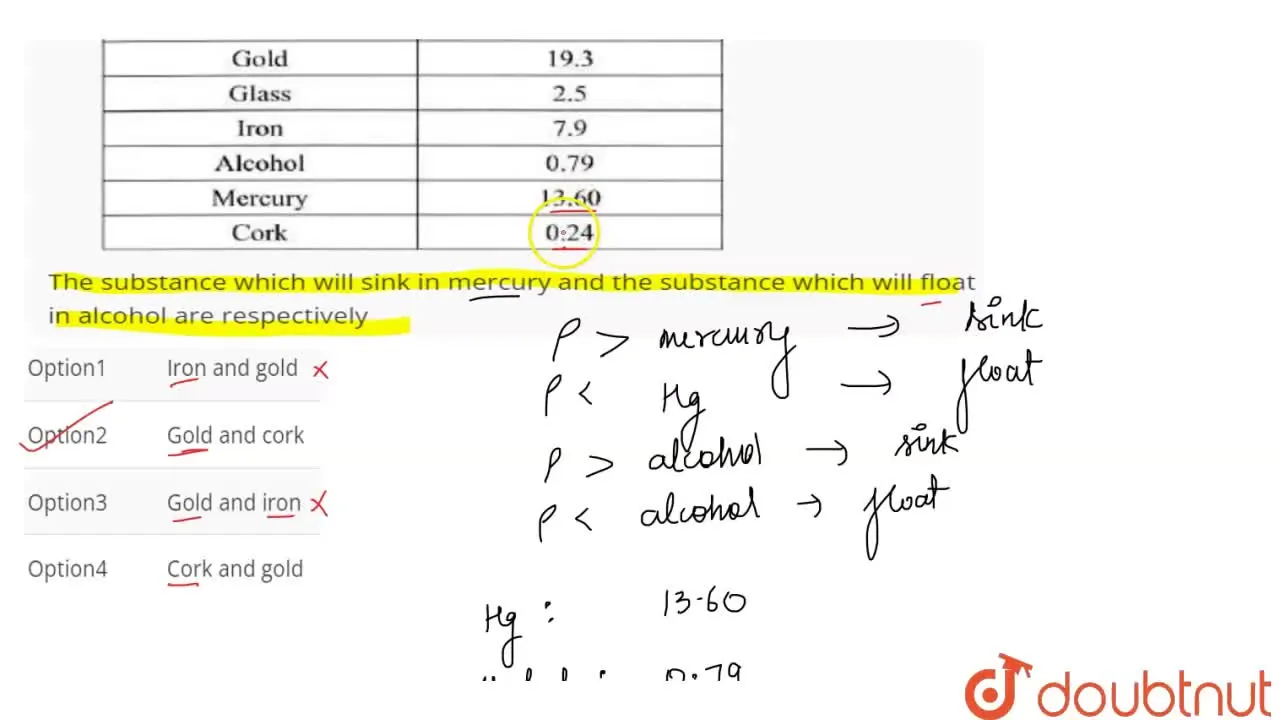 Gold 19.3
Glass 2.5
Iron 7.9
Alcohol 0.79
Mercury 13.60
Cork 0.24
The substance which will sink in mercury and the substance which will float
in alcohol are respectively
Option1 Iron and gold ×
Option2 Gold and cork
Option3 Gold and iron ×
Option4 Cork and gold
ρ > mercury → sink
ρ < Hg → float
ρ > alcohol → sink
ρ < alcohol → float
Hg : 13.60
0.79
doubtnut